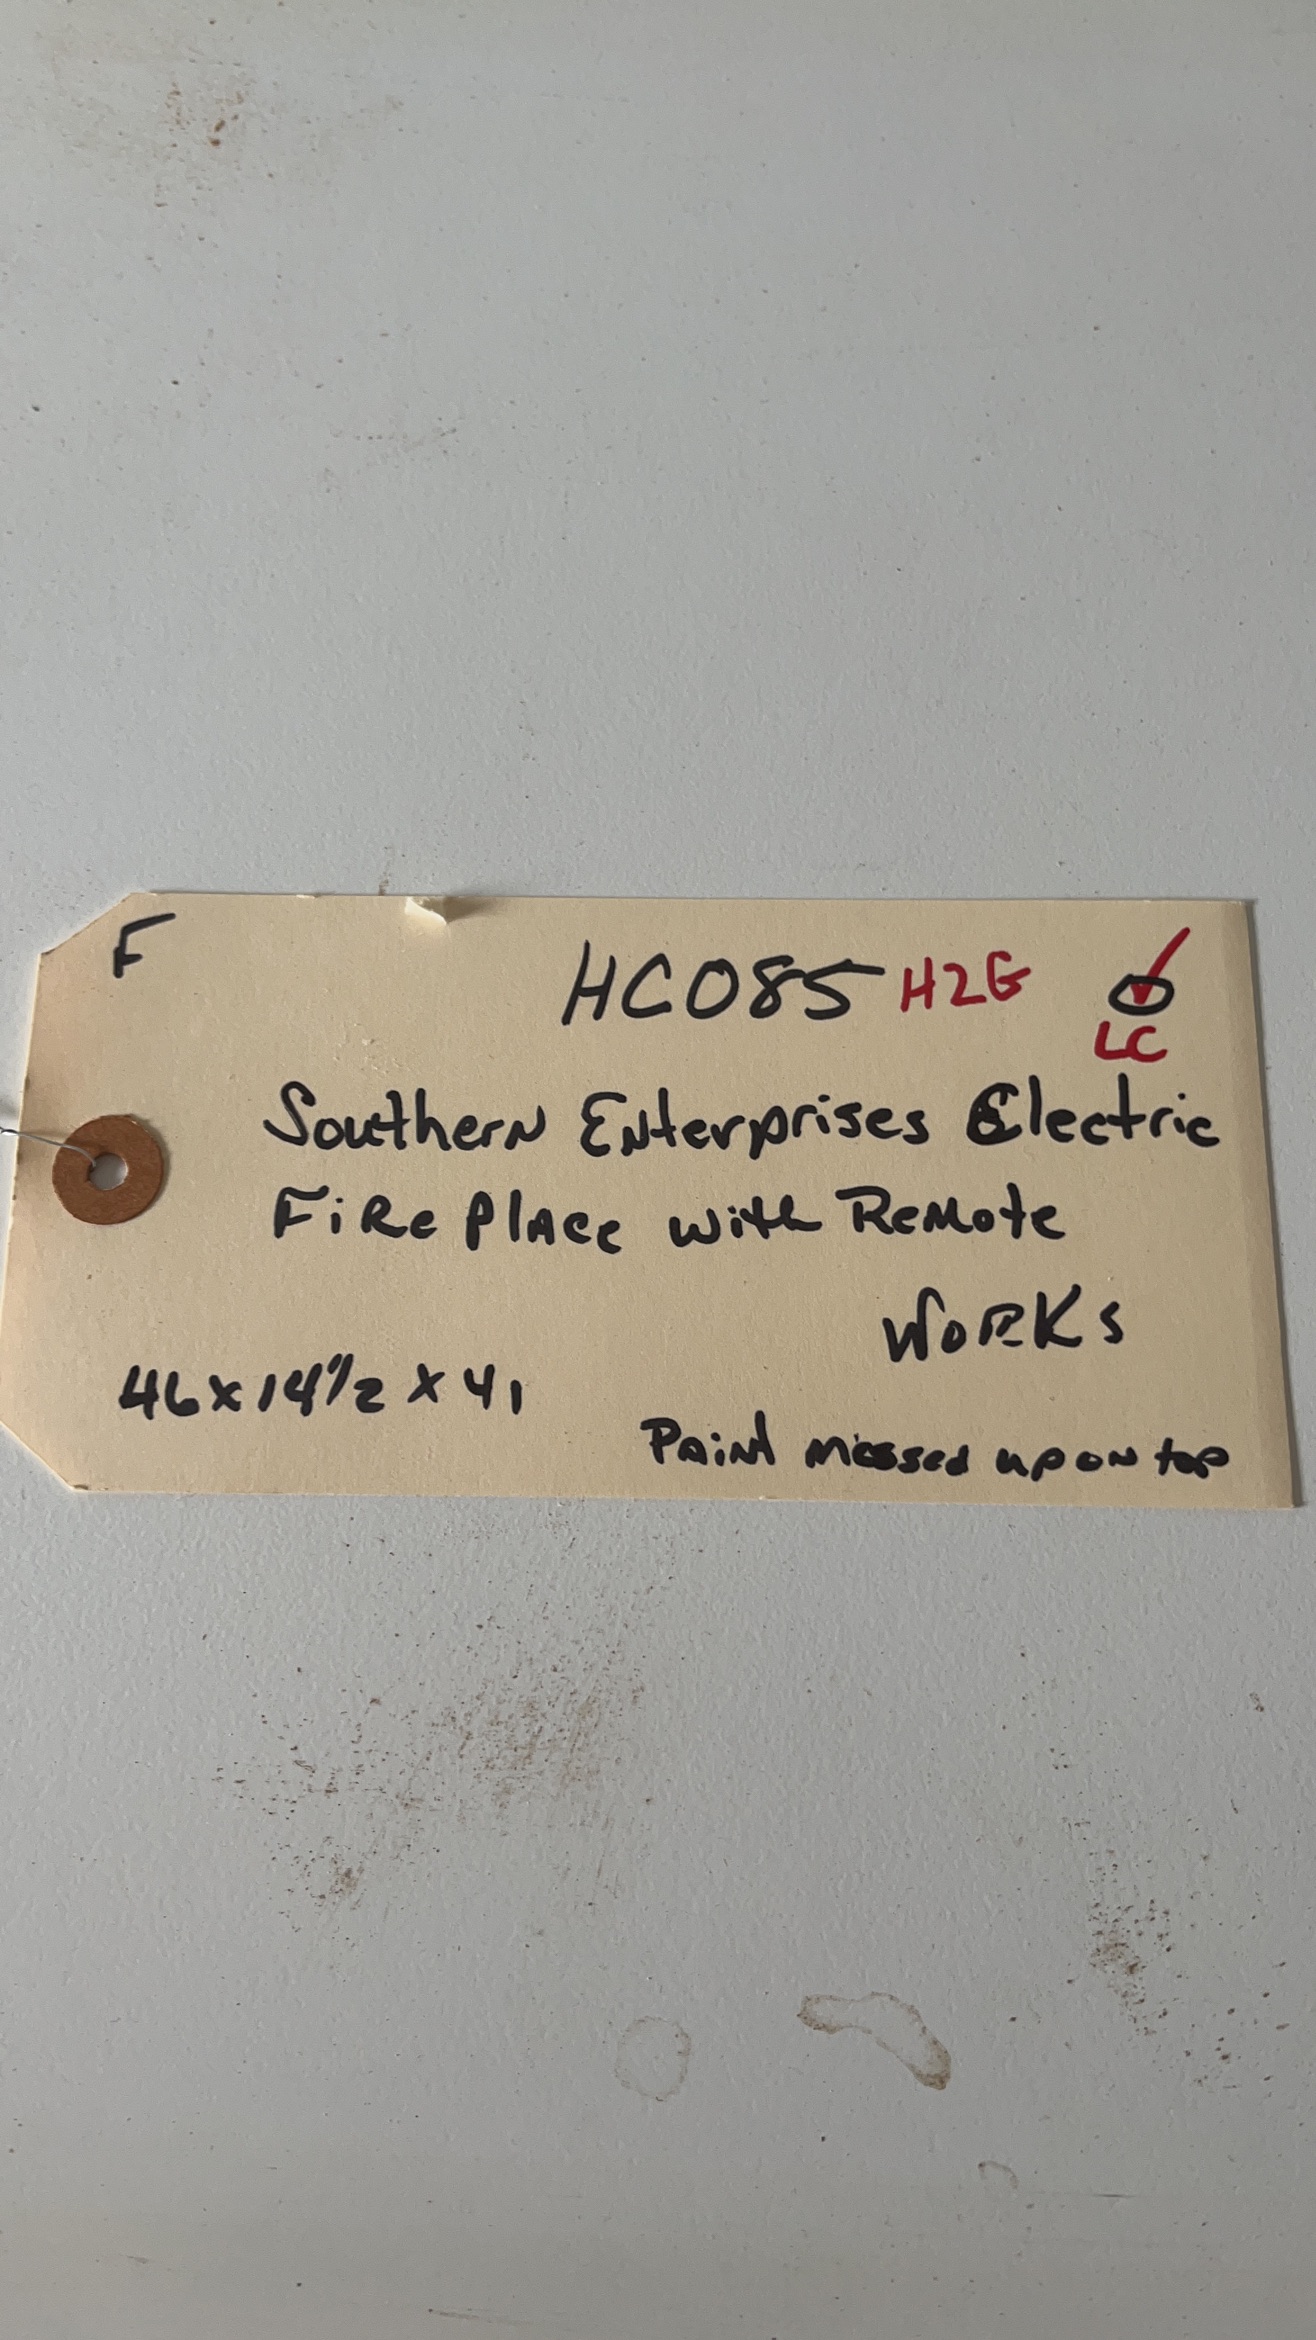 F
HC085 H2G
LC
Southern Enterprises Electric
Fire Place with Remote
Works
46x14 1/2 x 41
Paint messed up on top